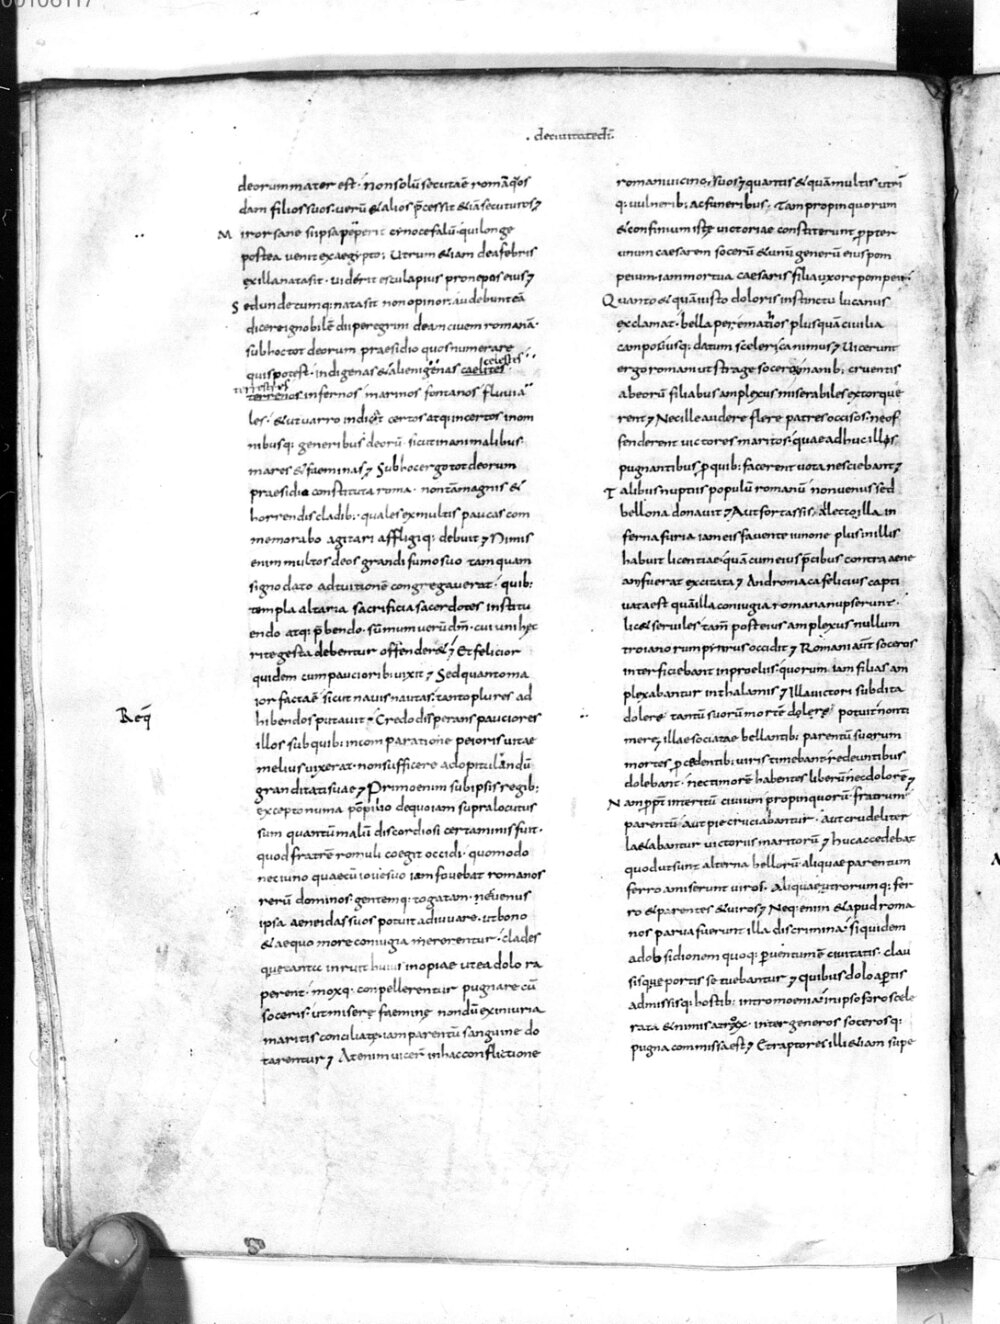 00106117
· deciuitatedī·
deorum mater est · non solū secutaē romā q̄os
dam filios suos · uerū & alios p̄cessit & iā secuturos ⁊
Miror sane si ipsa peperit cynocefalū · qui longe
postea uenit ex aegypto; Utrum & iam dea febris
ex illa nata sit · uiderit esculapius pronepos eius ⁊
Sed undecumq: nata sit non opinor · audebunt eā
dicere ignobilē dii peregrini deam ciuem romanā·
sub hoc tot deorum praesidio quos numerare
caelestes
quis potest · indigenas & alienigenas caelites
terrestres
terrenos infernos marinos fontanos fluuia
les · & ut uarro indicit certos atq: incertos in om
nibusq: generibus deorū · sicut in animalibus
mares & faeminas ⁊ Sub hoc ergo tot deorum
praesidio constituta roma · non tā magnis &
horrendis cladib: · quales ex multis paucas com
memorabo agitari affligiq: debuit ⁊ Nimis
enim multos deos grandi fumo suo tamquam
signo dato ad tuitionē congregauerat · quib:
templa altaria sacrificia sacerdotes institu
endo atq: p̄bendo · sūmum uerū dm̄ · cui uni hęc
rite gesta debentur offender& ⁊ Et felicior
quidem cum paucioribus uixit ⁊ Sed quanto ma
ior facta ē sicut nauis nautas · tanto plures ad
Req̄
hibendos putauit ⁊ Credo disperans pauciores
illos sub quib: in comparatione peioris uitae
melius uixerat · non sufficere ad opitulandū
granditati suae ⁊ Primo enim sub ipsis regib:
excepto numa pōpilio de quo iam supra locutus
sum quantū malū discordiosi certaminis fuit ·
quod fratrē romuli coegit occidi · quomodo
nec iuno quae cū ioue suo iam fouebat romanos
rerū dominos · gentemq: togatam · nec uenus
ipsa aeneidas suos potuit adiuuare · ut bono
& aequo more coniugia mererentur · clades
perent · moxq: conpellerentur pugnare cū
soceris · ut miserę faeminę nondū ex iniuria
maritis conciliatę iam parentū sanguine do
tarentur ⁊ At enim uicerr̄ in hac conflictione
romani uicinos suos ⁊ quantis & quā multis utri
q: uulnerib: ac funeribus · Tam propinquorum
& confinium istę uictoriae constiterunt p̄pter
unum caesarem socerū & unū generū eius pom
peium · iam mortua caesaris filia uxore pompei ·
Quanto & quā iusto doloris instinctu lucanus
exclamat · bella per emathios plusquā ciuilia
campos iusq: datum sceleri canimus ⁊ Uicerunt
ergo romani ut strage socerorum manib: cruentis
ab eorū filiabus amplexus miserabiles extorque
rent ⁊ Nec ille auderent flere patres occisos · ne of
fenderent uictores maritos · quae adhuc illis
pugnantibus p̄ quib: facerent uota nesciebant ⁊
Talibus nuptiis populū romanū non uenus sed
bellona donauit ⁊ Aut fortassis · allecto illa in
ferna furia iam eis fauente iunone plus in illis
habuit licentiae · quā cum eius p̄cibus contra aene
an fuerat excitata ⁊ Andromaca felicius capti
uata est quā illa coniugia romana nupserunt ·
lic& seruiles tam̄ post eius amplexus nullum
troianorum pirrus occidit ⁊ Romani aut̄ soceros
interficiebant in proeliis · quorum iam filias am
plexabantur in thalamis ⁊ Illa uictori subdita
dolere tantū suorū mortē dolere potuit non ti
mere; illae sociatae bellantib: parentū suorum
mortes p̄cedentib: uiris timebant · redeuntibus
dolebant · nec timorē habentes liberū nec dolorē ⁊
Nam ppt̄ interitū ciuium propinquorū · fratrum
parentū aut pie cruciabantur · aut crudeliter
l&abantur uictoriis maritorū ⁊ huc accedebat
quod ut sunt alterna bellorū aliquae parentum
ferro amiserunt uiros · aliquae utrorumq: fer
ro & parentes & uiros ⁊ Neq: enim & apud roma
nos parua fuerunt illa discrimina · siquidem
ad obsidionem quoq: peruentum ē ciuitatis · clau
sisque portis se tuebantur ⁊ quibus dolo ap̄tis
admissisq: hostib: intro moenia · in ipso foro scele
rata & nimis atrox · inter generos socerosq:
pugna commissa est ⁊ Et raptores illi & iam supe